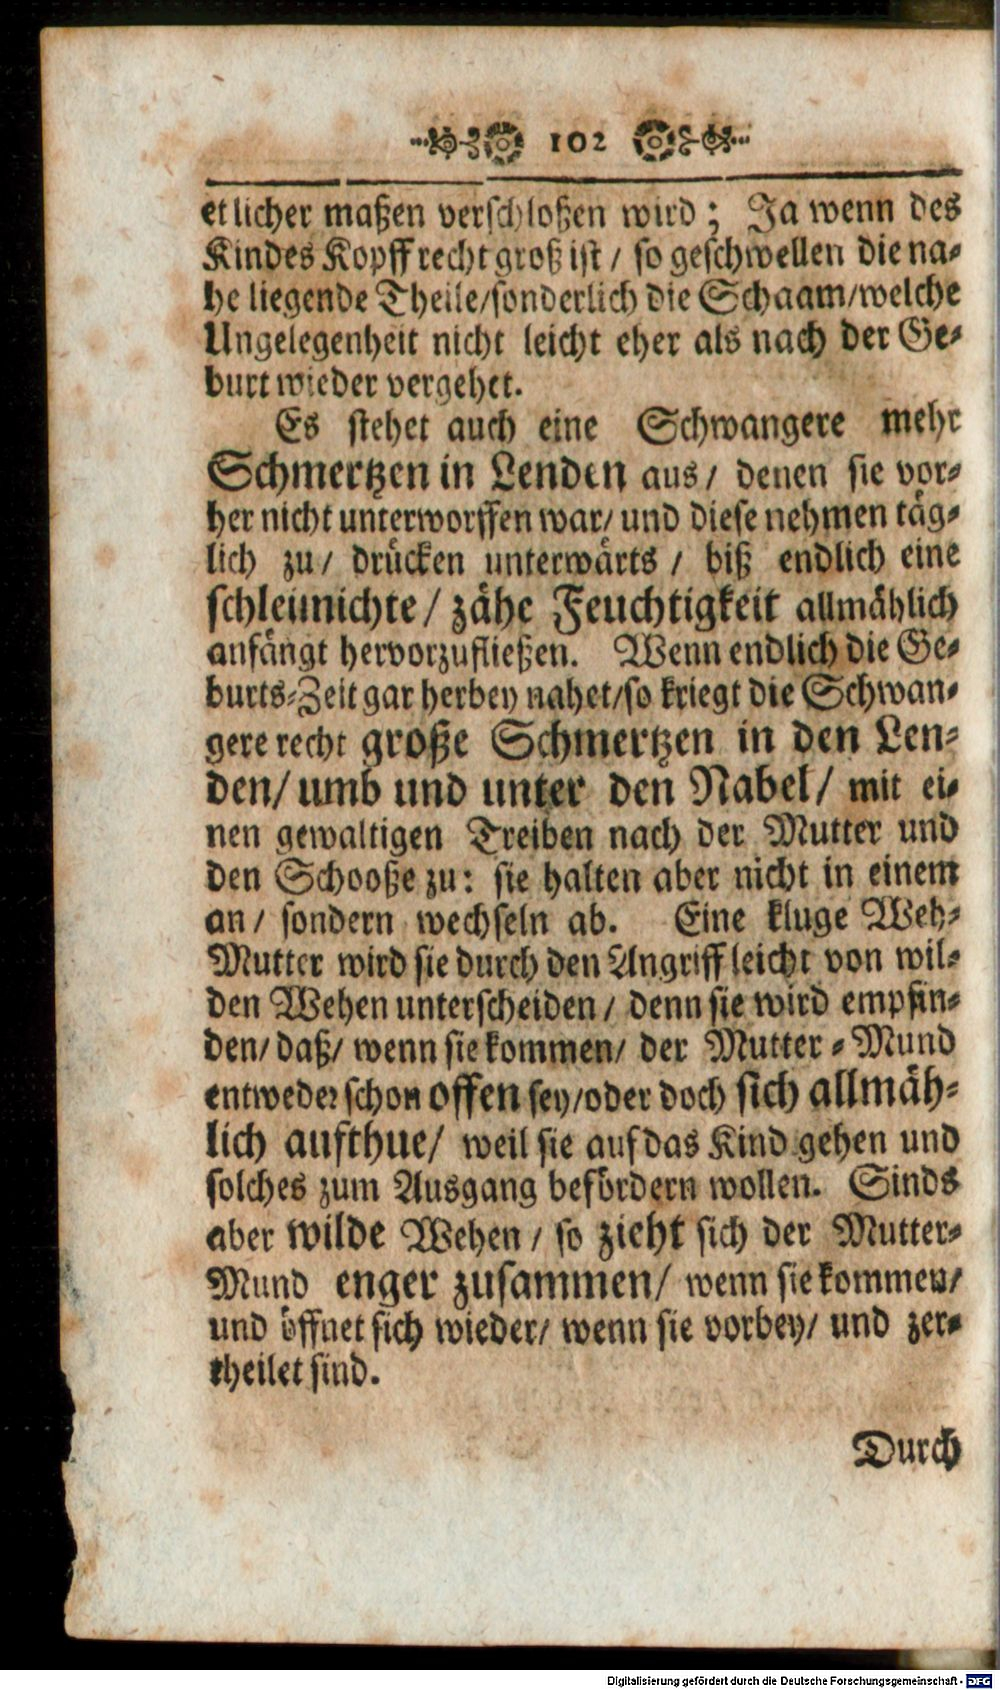 102
etlicher maßen verschloßen wird; Ja wenn des
Kindes Kopff recht groß ist/ so geschwellen die na-
he liegende Theile/sonderlich die Schaam/welche
Ungelegenheit nicht leicht eher als nach der Ge-
burt wieder vergehet.
Es stehet auch eine Schwangere mehr
Schmertzen in Lenden aus/ denen sie vor-
her nicht unterworffen war/ und diese nehmen täg-
lich zu/ drücken unterwärts/ biß endlich eine
schleimichte/ zähe Feuchtigkeit allmählich
anfängt hervorzufließen. Wenn endlich die Ge-
burts-Zeit gar herbey nahet/so kriegt die Schwan-
gere recht große Schmertzen in den Len-
den/ umb und unter den Nabel/ mit ei-
nen gewaltigen Treiben nach der Mutter und
den Schooße zu: sie halten aber nicht in einem
an/ sondern wechseln ab. Eine kluge Weh-
Mutter wird sie durch den Angriff leicht von wil-
den Wehen unterscheiden/ denn sie wird empfin-
den/ daß/ wenn sie kommen/ der Mutter-Mund
entweder schon offen sey/oder doch sich allmäh-
lich aufthue/ weil sie auf das Kind gehen und
solches zum Ausgang befördern wollen. Sinds
aber wilde Wehen/ so zieht sich der Mutter-
Mund enger zusammen/ wenn sie kommen/
und öffnet sich wieder/ wenn sie vorbey/ und zer-
theilet sind.
Durch
Digitalisierung gefördert durch die Deutsche Forschungsgemeinschaft - DFG